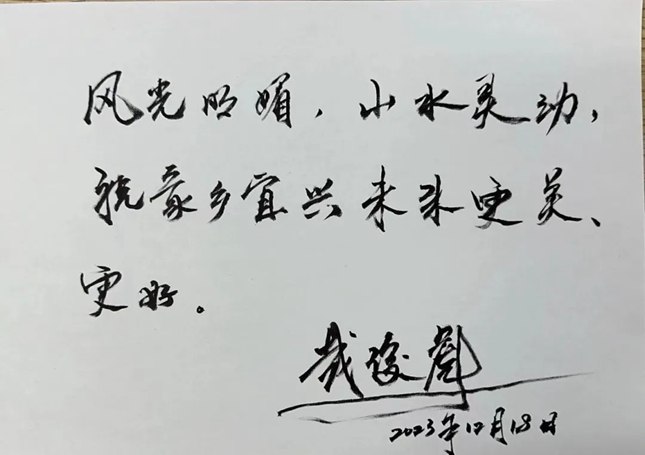 风光明媚，山水灵动，
祝家乡宜兴未来更美、
更好。
2023年12月18日